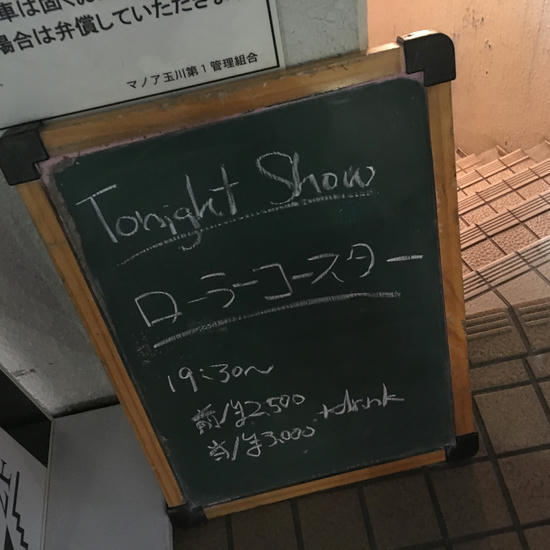 場合は弁償していただきま
マノア玉川第1管理組合
Tonight Show
ローラーコースター
19:30〜
前/¥2,500
当/¥3,000 +drink